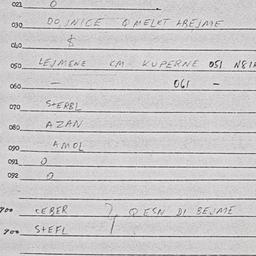 021 0
030 DOJNICE QMELKT HBEJME
040 &
050 LEJMENE KM KUPERNE 051
060 — 061 —
070 STERBL
080 AZAN
090 AMOL
091 0
092 0
700 CEBER } QESN DI BEJME
700 STEFL